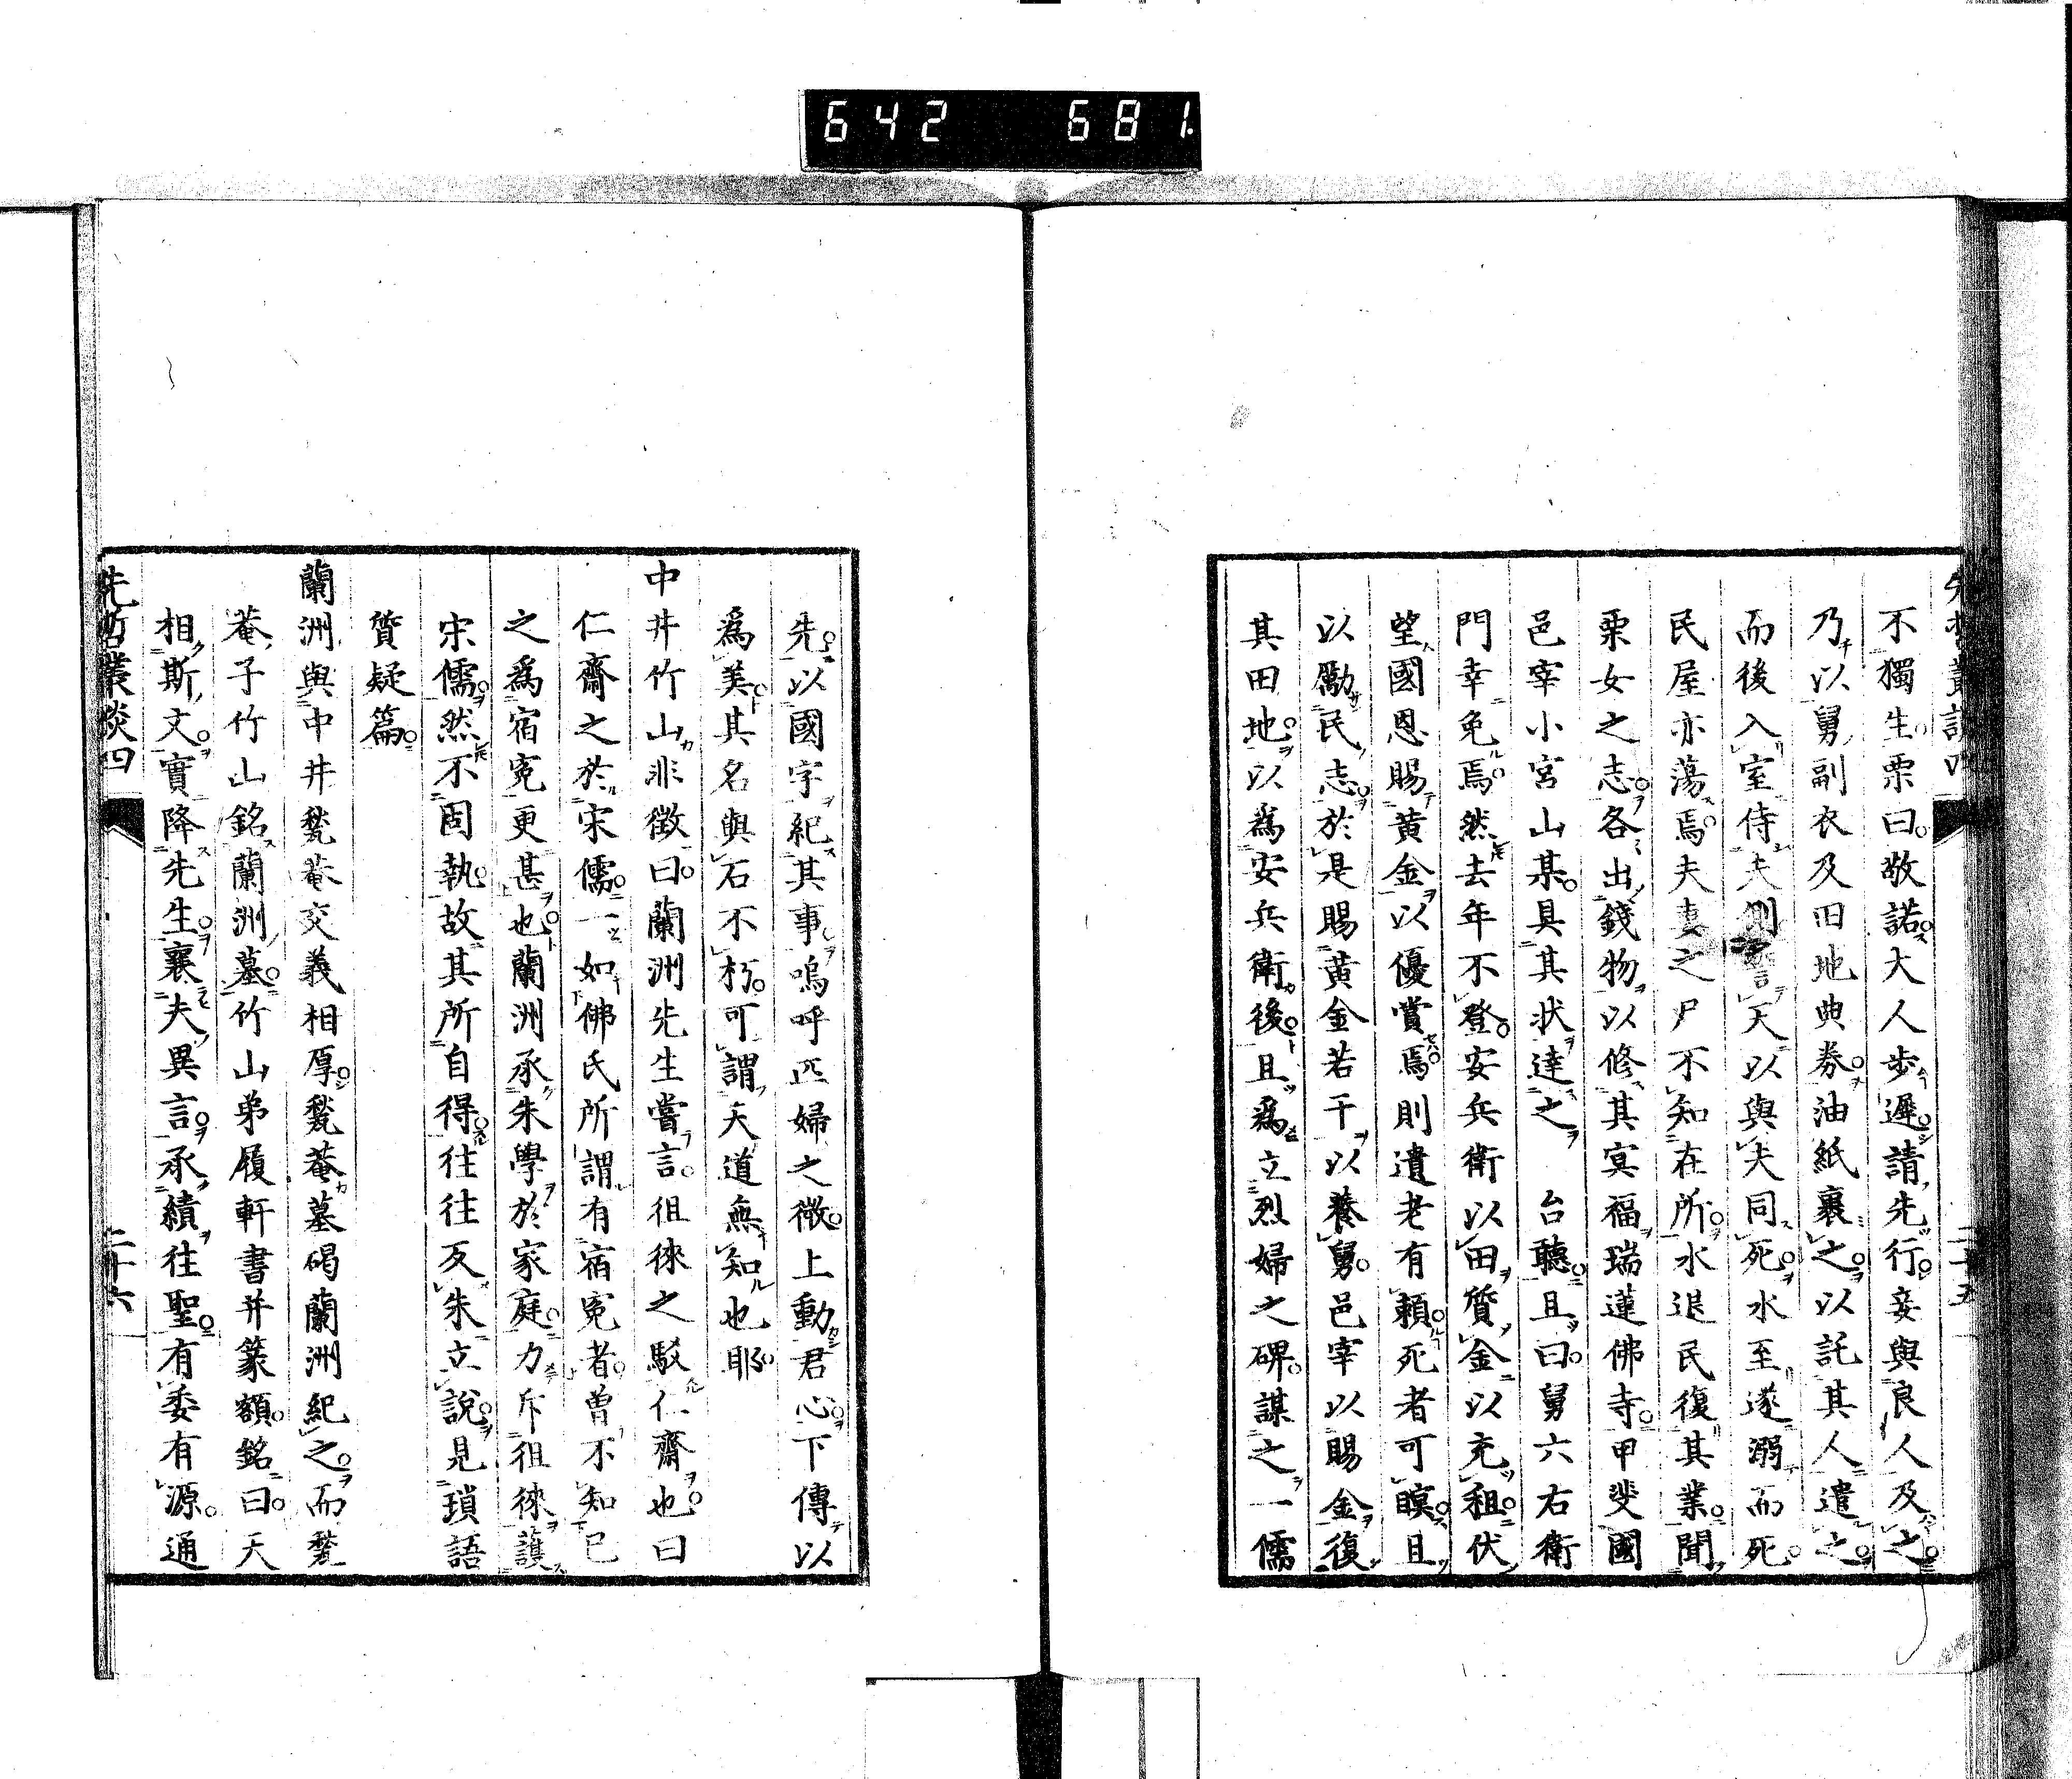 642 681.
不獨生栗曰敬諾大人步遲請先行妾與良人及之
乃以舅副衣及田地典券油紙裹之以託其人遣之
而後入室侍夫側誓天以與夫同死水至遂溺而死
民屋亦蕩焉夫妻之尸不知在所水退民復其業聞
栗女之志各出錢物以修其冥福瑞蓮佛寺甲斐國
邑宰小宮山某具其狀達之 台聽且曰舅六右衛
門幸免焉然去年不登安兵衛以田質金以充租伏
望國恩賜黃金以優賞焉則遺老有賴死者可瞑且
以勵民志於是賜黃金若干以養舅邑宰以賜金復
其田地以為安兵衛後且為立烈婦之碑謀之一儒
先以國字紀其事嗚呼匹婦之微上動君心下傳以
爲美其名與石不朽可謂天道無知也耶
中井竹山非徵曰蘭洲先生嘗言徂徠之駁仁齋也曰
仁齋之於宋儒一如佛氏所謂有宿冤者曾不知已
之爲宿冤更甚也蘭洲承朱學於家庭力斥徂徠護
宋儒然不固執故其所自得往往反朱立說見瑣語
質疑篇
蘭洲與中井甃菴交義相厚甃菴墓碣蘭洲紀之而甃
菴子竹山銘蘭洲墓竹山弟履軒書并篆額銘曰天
相斯文實降先生襄夫異言承績往聖有委有源通
先哲叢談四
二十六